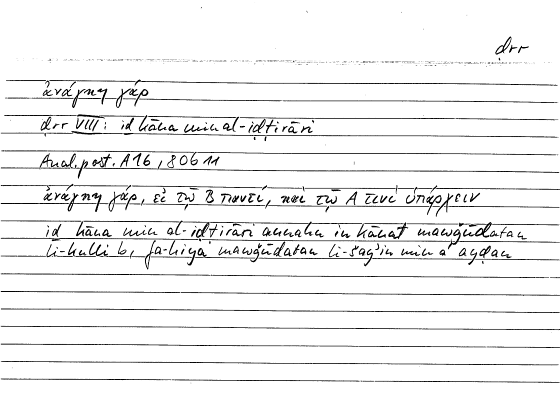 ḍrr
ἀνάγκη γάρ
ḍrr VIII: iḏ kāna min al-iḍṭirāri
Anal. post. A 16, 80b11
ἀνάγκη γάρ, εἰ τῷ B παντί, καὶ τῷ A τινὶ ὑπάρχειν
iḏ kāna min al-iḍṭirāri annahu in kānat mawǧūdatan
li-kulli b, fa-hiya mawǧūdatan li-šayʾin min a ayḍan